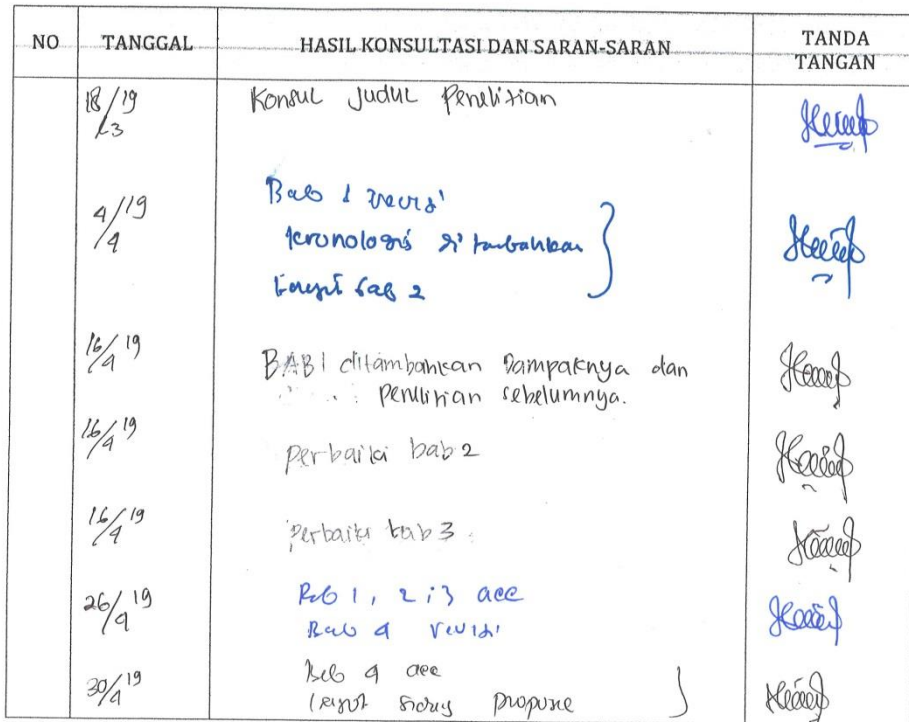 NO TANGGAL HASIL KONSULTASI DAN SARAN-SARAN TANDA
TANGAN
18/3 19 Konsul Judul Penelitian
4/4 19 Bab 1 revisi
kronologis di tambahkan
Lanjut bab 2
16/4 19 BAB 1 ditambahkan Dampaknya dan
penelitian sebelumnya.
16/4 19 perbaiki bab 2
16/4 19 perbaiki bab 3
26/4 19 Bab 1, 2, 3 acc
Bab 4 revisi
30/4 19 Bab 4 acc